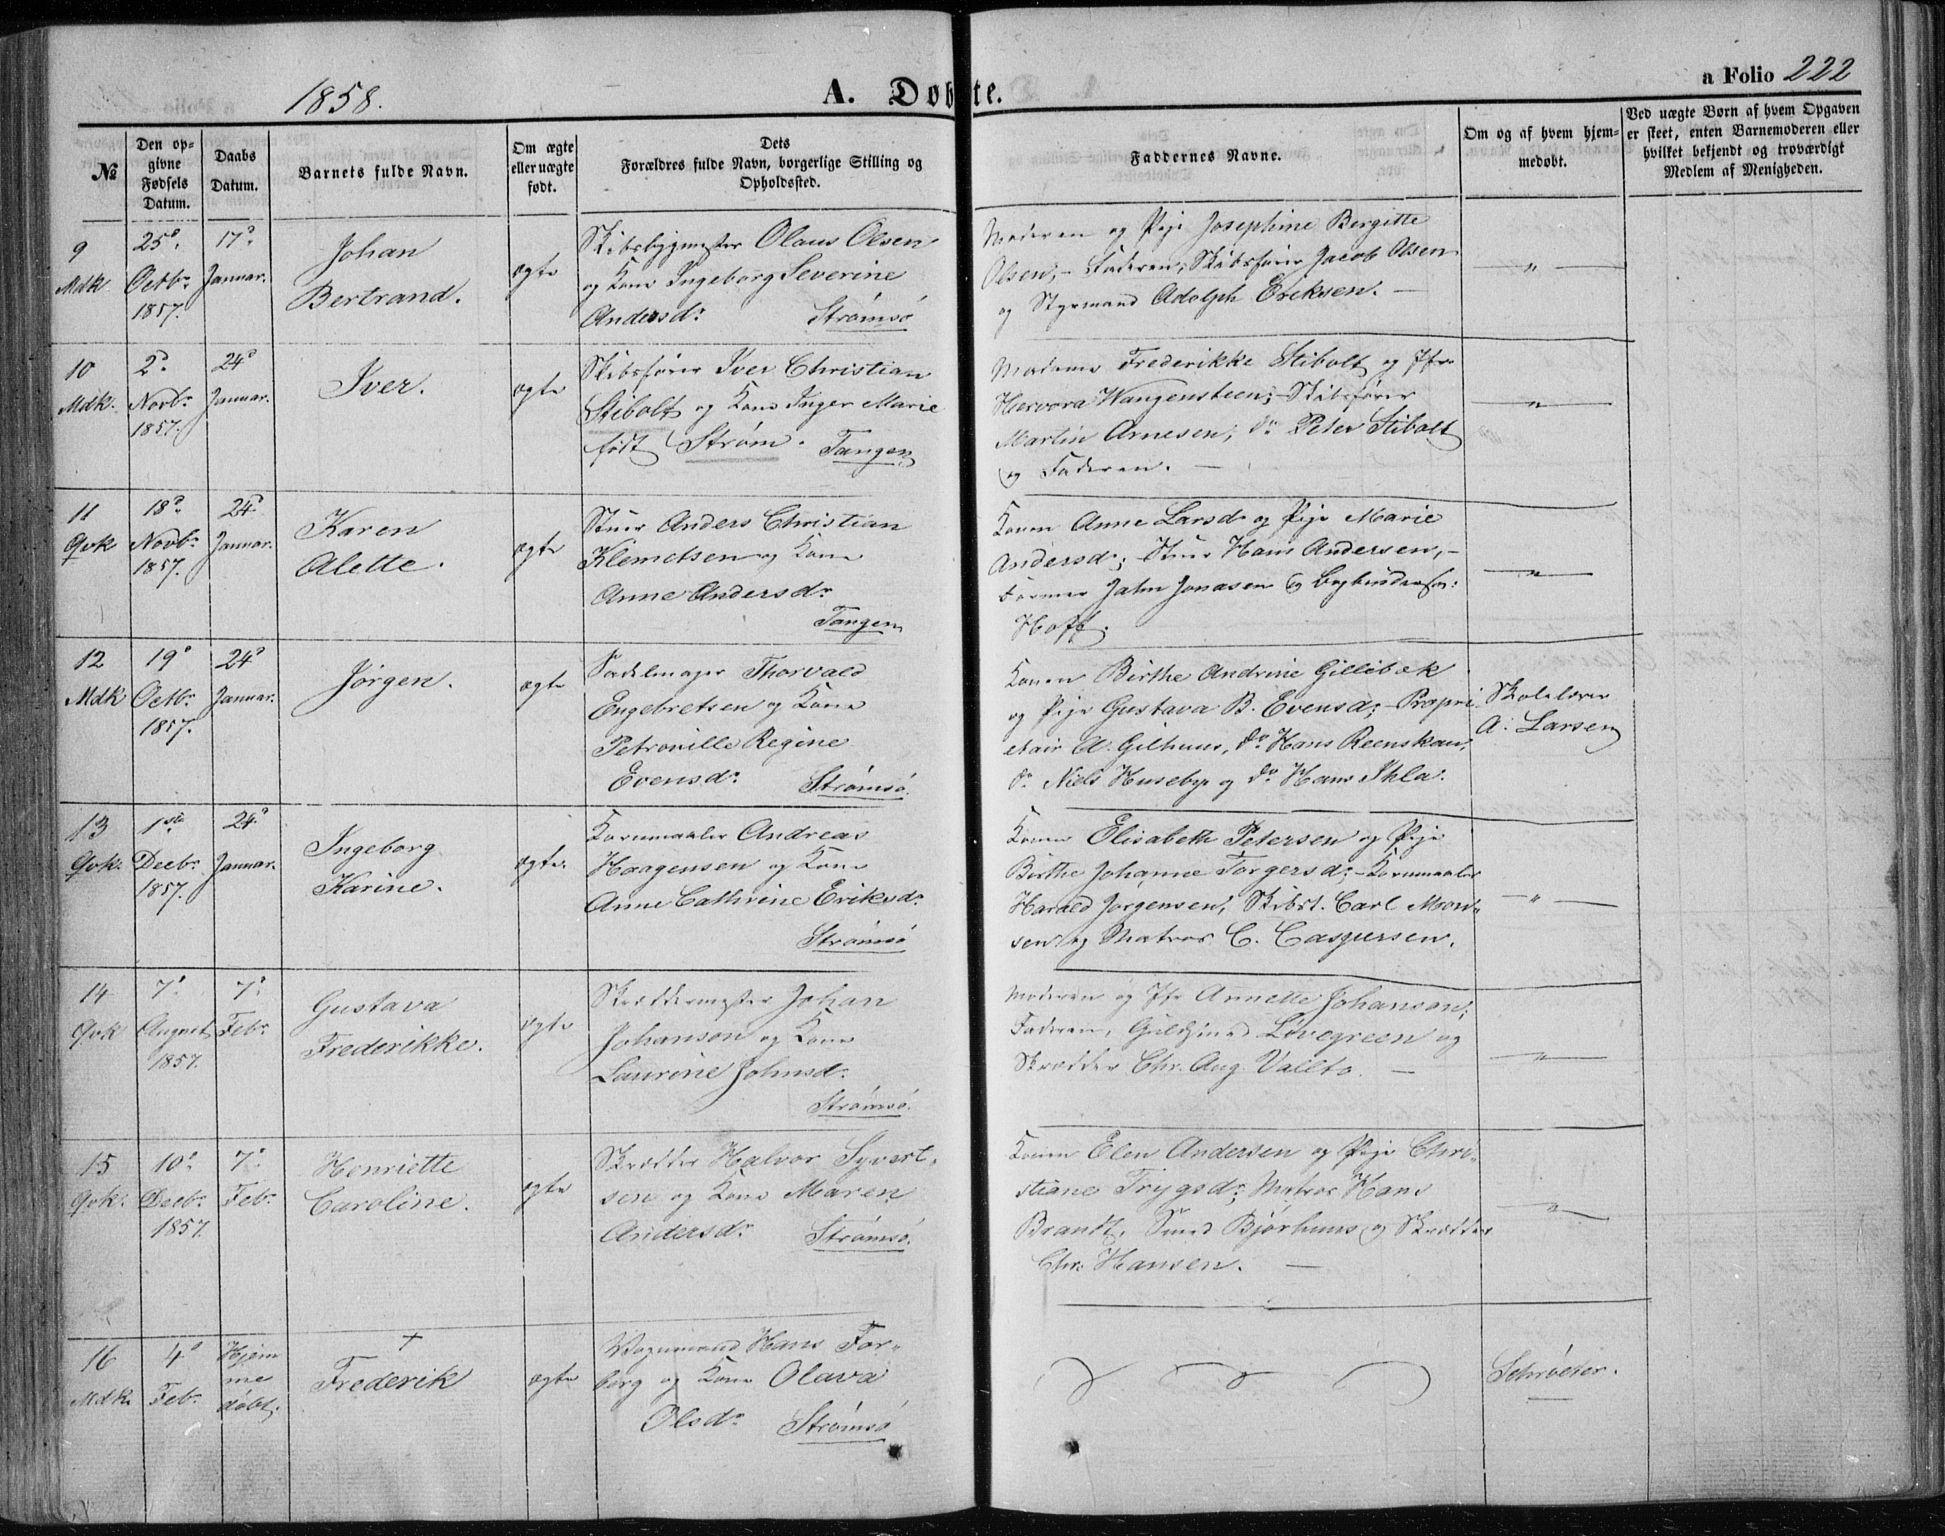 1858.
A. Døbte.
a Folio 222
№
Den op-
givne
Fødsels
Datum.
Daabs
Datum.
Barnets fulde Navn.
Om ægte
eller uægte
født.
Dets
Forældres fulde Navn, borgerlige Stilling og
Opholdssted.
Faddernes Navne.
Om og af hvem hjem-
medøbt.
Ved uægte Børn af hvem Opgaven
er skeet, enten Barnemoderen eller
hvilket bekjendt og troværdigt
Medlem af Menigheden.
9
Mdk
25de
Octbr
1857.
17de
Januar.
Johan
Bertrand.
ægte
Skibsbygmester Olaus Olsen
og Kone Ingeborg Severine
Andersdr Strømsø
Moderen og Pige Josephine Bergitte
Olsen, – Faderen, Skibsfører Jacob Olsen
og Styrmand Adolph Eriksen. –
– " –
10
Mdk.
2de
Novbr
1857.
24de
Januar.
Iver.
ægte
Skibsfører Iver Christian
Stibolt og Kone Inger Marie
født Strøm. Tangen
Madame Frederikke Stibolt og Jfr
Hervora Wangensteen; Skibsfører
Martin Arnesen; do Peter Stibolt
og Faderen. –
– " –
11
Qvk
18de
Novbr
1857.
24de
Januar.
Karen
Alette.
ægte
Stuer Anders Christian
Klemetsen og Kone
Anne Andersdr
Tangen
Konen Anne Larsd og Pige Marie
Andersdr; Stuer Hans Andersen, –
Former Jahn Jonasen og
Hoff.
– " –
12
Mdk
19de
Octbr
1857.
24de
Januar.
Jørgen.
ægte
Sadelmager Thorvald
Engebretsen og Kone
Petronille Regine
Evensdr Strømsø.
Konen Birthe Andrine Gillibek
og Pige Gustava B. Evensd; – Propri-
etair A. Gilhuus, do Hans Reenskau,
do Niels Huseby og do Hans Ihla.
Skolelærer
A. Larsen
13
Qvk.
1ste
Decbr
1857.
24de
Januar.
Ingeborg
Karine.
ægte.
Kornmaaler Andreas
Haagensen og Kone
Anne Cathrine Eriksdr
Strømsø
Konen Elisabeth Petersen og Pige
Birthe Johanne Torgersd; – Kornmaaler
Harald Jørgensen, Skibst. Carl Mon-
sen og Matros C. Caspersen.
– " –
14
Qvk
7de
August
1857.
7de
Febr
Gustava
Frederikke.
ægte
Skræddermester Johan
Johanson og Kone
Laurine Johnsdr
Strømsø.
Moderen og Jfr Annette Johanson;
Faderen, Guldsmed Lovegreen og
Skrædder Chr. Aug. Vallto. –
– " –
15
Qvk.
10de
Decbr
1857
7de
Febr
Henriette
Caroline.
ægte
Skrædder Halvor Syvert-
sen og Kone Maren
Andersdr Strømsø.
Konen Elen Andersen og Pige Chri-
stiane Trygsdr; Matros Hans
Brandt, Smed Bjørhuus og Skrædder
Chr. Hansen. –
– " –
16
Mdk
4de
Febr
Hjem
me
døbt.
+
Frederik
ægte
Vognmand Hans For-
berg og Kone Olava
Olsdr Strømsø
Schrøeter.